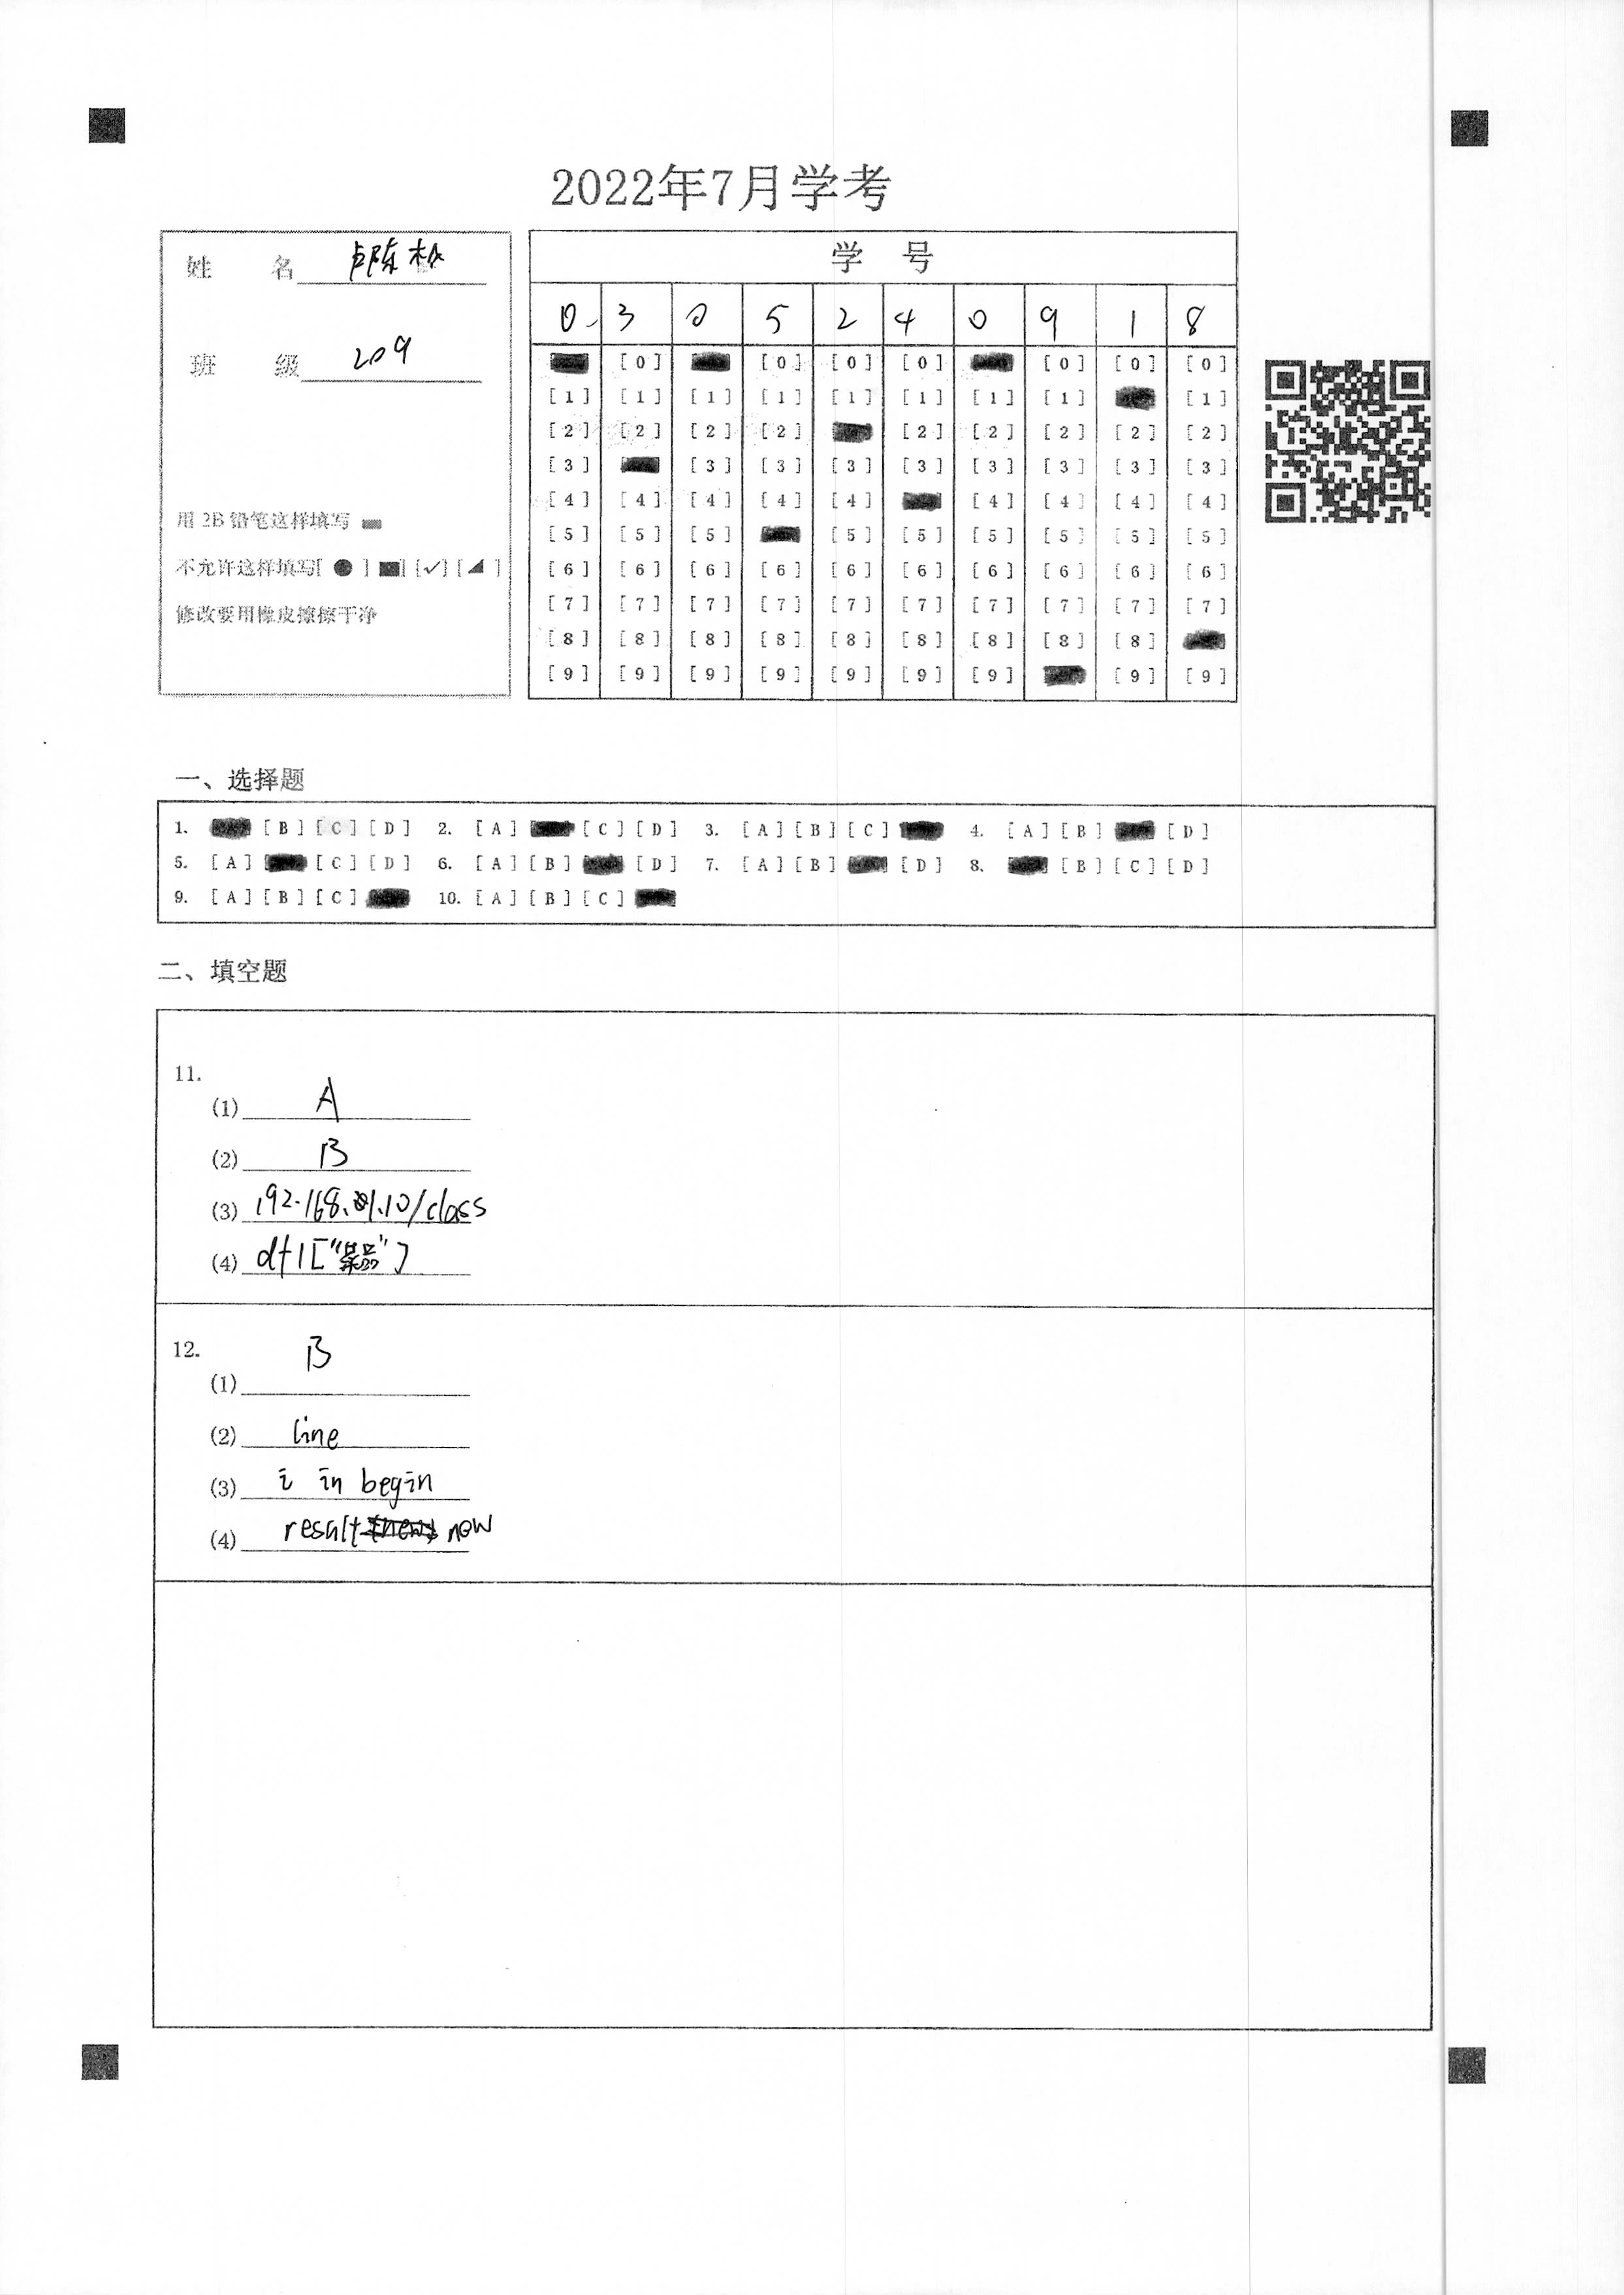 2022年7月学考
姓 名 卢陈
班 级 209
用 2B 铅笔这样填写
不允许这样填写[ ● ] [■] [✓] [◢ ]
修改要用橡皮擦擦干净
学 号
0 3 0 5 2 4 0 9 1 8
[0] [0] [0] [0] [0] [0] [0]
[1] [1] [1] [1] [1] [1] [1] [1] [1]
[2] [2] [2] [2] [2] [2] [2] [2] [2]
[3] [3] [3] [3] [3] [3] [3] [3] [3]
[4] [4] [4] [4] [4] [4] [4] [4] [4]
[5] [5] [5] [5] [5] [5] [5] [5] [5]
[6] [6] [6] [6] [6] [6] [6] [6] [6] [6]
[7] [7] [7] [7] [7] [7] [7] [7] [7] [7]
[8] [8] [8] [8] [8] [8] [8] [8] [8]
[9] [9] [9] [9] [9] [9] [9] [9] [9]
一、选择题
1. [B] [C] [D] 2. [A] [C] [D] 3. [A] [B] [C] 4. [A] [B] [D]
5. [A] [C] [D] 6. [A] [B] [D] 7. [A] [B] [D] 8. [B] [C] [D]
9. [A] [B] [C] 10. [A] [B] [C]
二、填空题
11.
(1) A
(2) B
(3) 192.168.1.10/class
(4) df1["菜品"]
12.
(1) B
(2) line
(3) i in begin
(4) result now